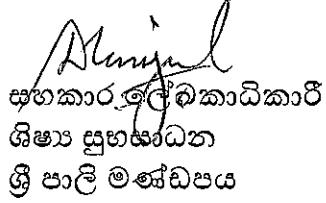 සහකාර ලේඛකාධිකාරී
ශිෂ්‍ය සුභසාධන
ශ්‍රී පාලි මණ්ඩපය